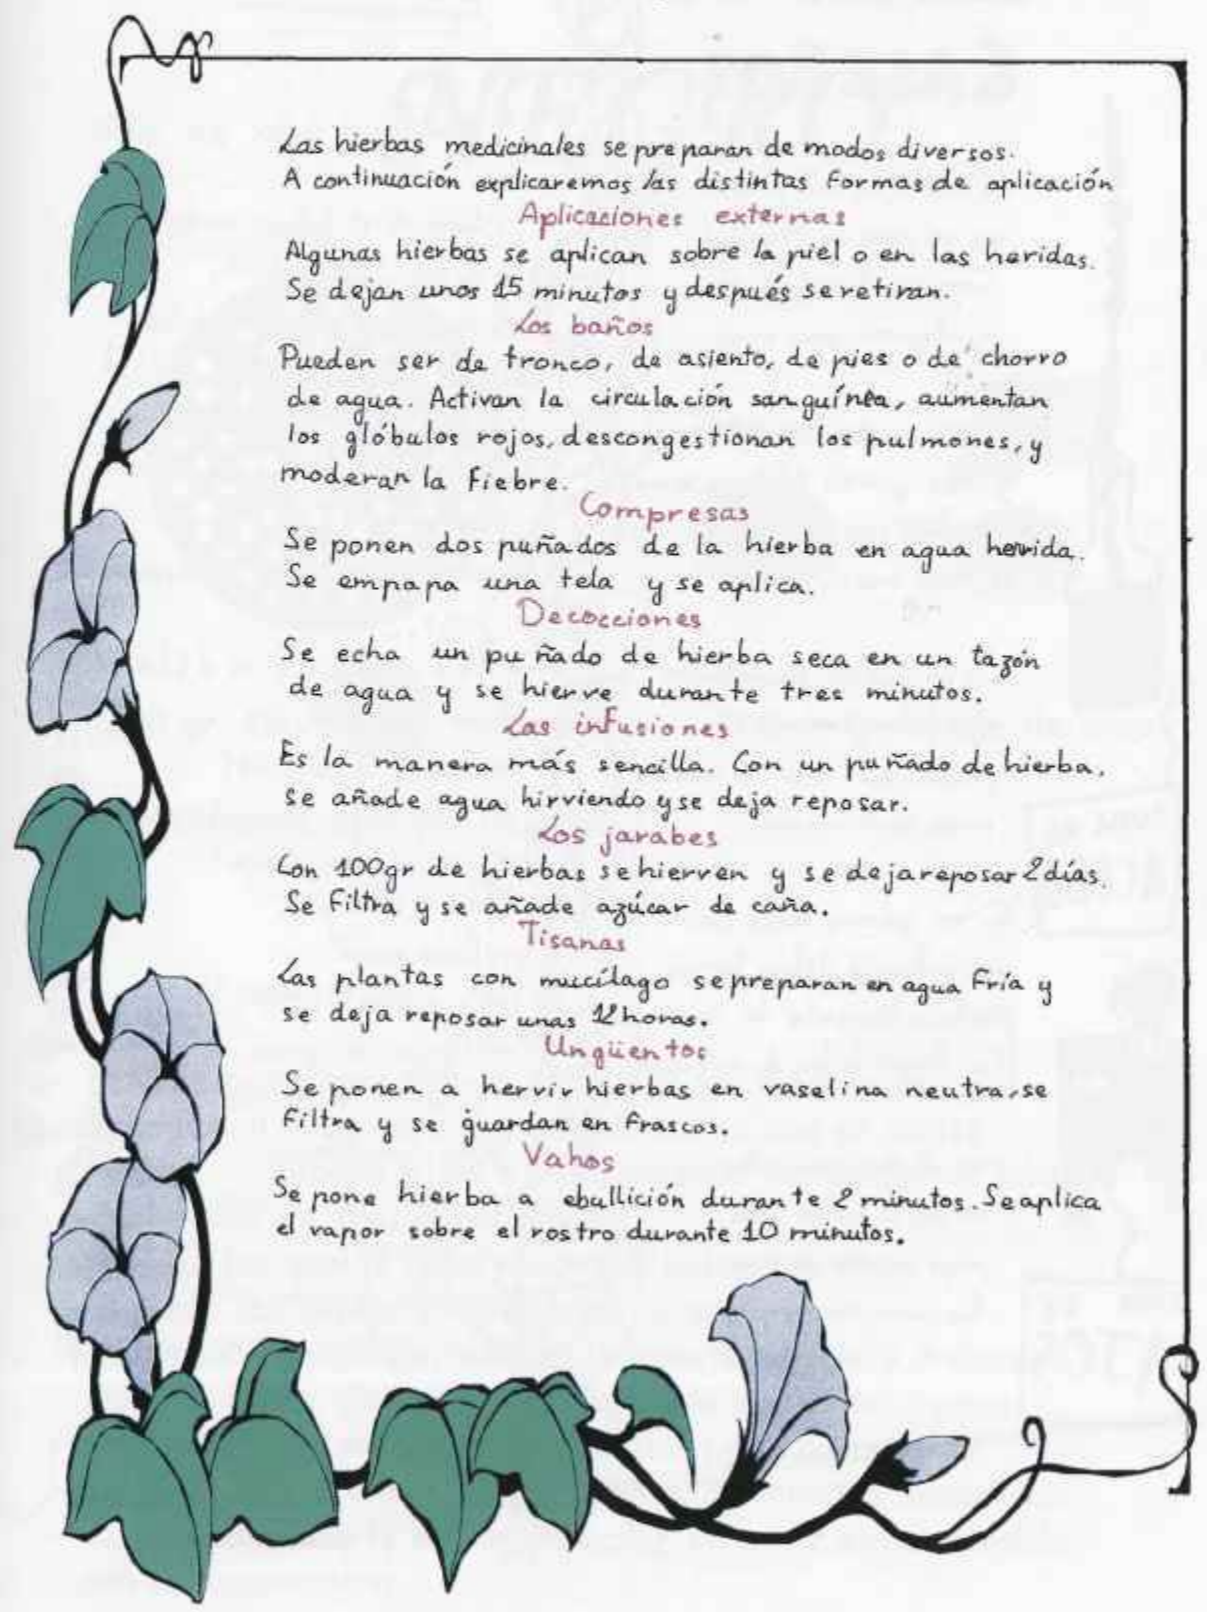 Las hierbas medicinales se preparan de modos diversos.
A continuación explicaremos las distintas formas de aplicación
Aplicaciones externas
Algunas hierbas se aplican sobre la piel o en las heridas.
Se dejan unos 15 minutos y después se retiran.
Los baños
Pueden ser de tronco, de asiento, de pies o de chorro
de agua. Activan la circulación sanguínea, aumentan
los glóbulos rojos, descongestionan los pulmones, y
moderan la fiebre.
Compresas
Se ponen dos puñados de la hierba en agua hervida.
Se empapa una tela y se aplica.
Decocciones
Se echa un puñado de hierba seca en un tazón
de agua y se hierve durante tres minutos.
Las infusiones
Es la manera más sencilla. Con un puñado de hierba,
se añade agua hirviendo y se deja reposar.
Los jarabes
Con 100gr de hierbas se hierven y se deja reposar 2 días.
Se filtra y se añade azúcar de caña.
Tisanas
Las plantas con mucílago se preparan en agua fría y
se deja reposar unas 12 horas.
Ungüentos
Se ponen a hervir hierbas en vaselina neutra, se
filtra y se guardan en frascos.
Vahos
Se pone hierba a ebullición durante 2 minutos. Se aplica
el vapor sobre el rostro durante 10 minutos.